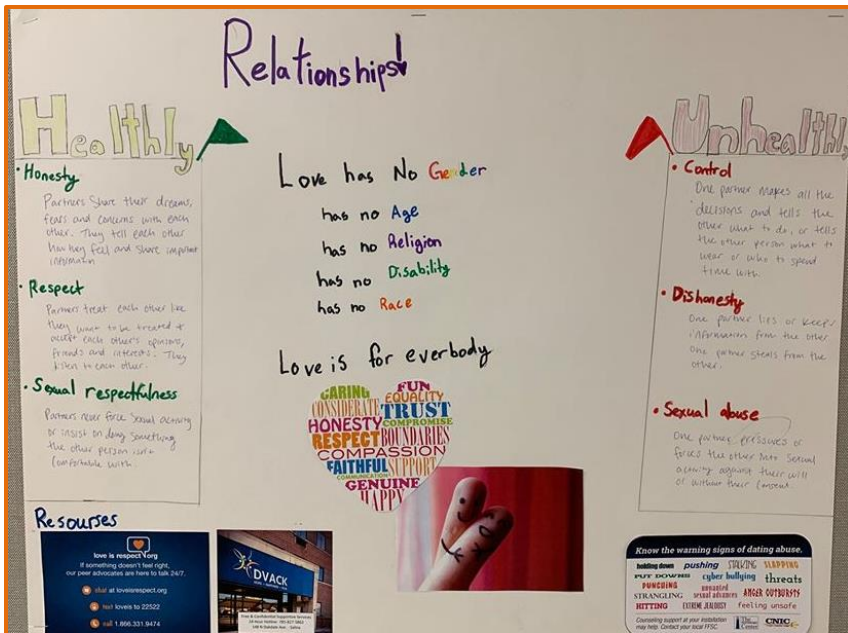 Relationships!
Healthly
• Honesty
Partners share their dreams,
fears and concerns with each
other. They tell each other
how they feel and share important
informatin
• Respect
Partners treat each other like
they want to be treated +
accept each other's opinions,
friends and interests. They
listen to each other.
• Sexual respectfulness
Partners never force sexual activity
or insist on doing something
the other person isn't
comfortable with.
Love has No Gender
has no Age
has no Religion
has no Disability
has no Race
Love is for everbody
CARING
FUN
EQUALITY
CONSIDERATE
TRUST
HONESTY
COMPROMISE
RESPECT
BOUNDARIES
COMPASSION
FAITHFUL
SUPPORT
COMMUNICATION
GENUINE
HAPPY
Unhealthly
• Control
One partner makes all the
decisions and tells the
other what to do, or tells
the other person what to
wear or who to spend
time with.
• Dishonesty
One partner lies or keeps
information from the other
one partner steals from the
other.
• Sexual abuse
One partner pressures or
forces the other into sexual
activity against their will
or without their consent.
Resourses
love is respect org
If something doesn't feel right,
our peer advocates are here to talk 24/7.
chat at loveisrespect.org
text loveis to 22522
call 1.866.331.9474
DVACK
Free & Confidential Supportive Services
Know the warning signs of dating abuse.
holding down pushing STALKING SLAPPING
PUT DOWNS cyber bullying threats
PUNCHING unwanted sexual advances ANGER OUTBURSTS
STRANGLING
HITTING EXTREME JEALOUSY feeling unsafe
Counseling support at your installation
may help. Contact your local FFSC.
CNIC